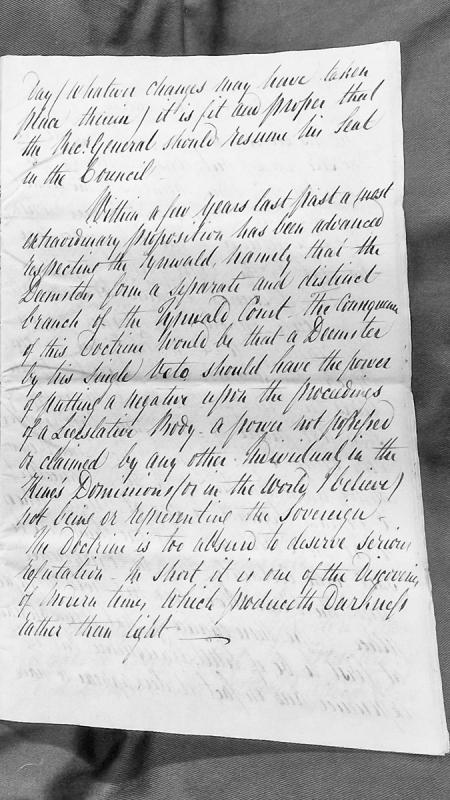 Day (whatever changes may have taken
place therein) it is fit and proper that
the Recr General should resume his Seat
in the Council
Within a few years last past a most
extraordinary proposition has been advanced
respecting the Tynwald, namely that the
Deemsters form a separate and distinct
branch of the Tynwald Court. The Consequence
of this Doctrine would be that a Deemster
by his single Veto, should have the power
of putting a negative upon the proceedings
of a Legislative Body. a power not possessed
or claimed by any other Individual in the
King's Dominions (or in the World I believe)
not being or representing the Sovereign.
The Doctrine is too absurd to deserve serious
refutation. In short it is one of the Discoveries
of modern times which produceth Darkness
rather than light